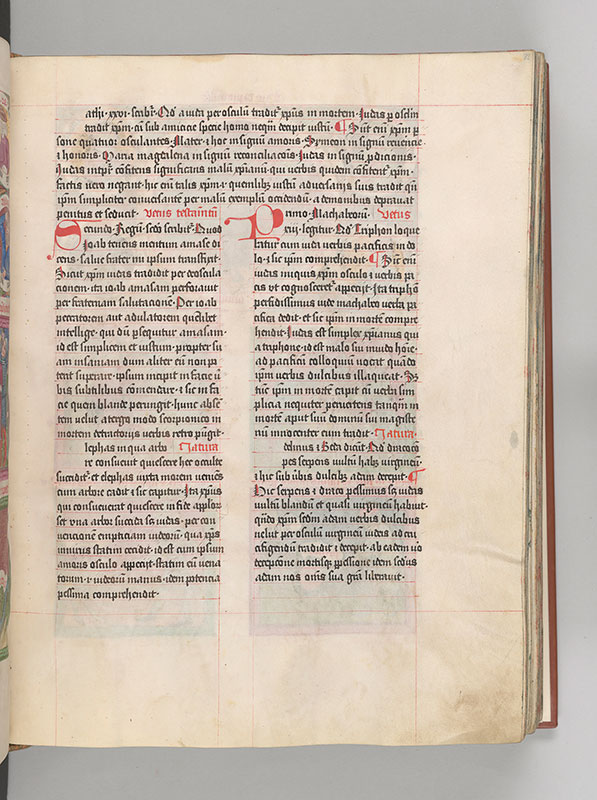 athei · xxvi · scribitur · Quod a iuda per osculum traditur xpus in mortem · Iudas per osculum
tradit xpm · cum sub amicicie specie homo nequam decipit iustum · Sunt enim xpm per
sone quatuor osculantes · Mater · hoc in signum amoris · Symeon in signum reuerencie
et honoris · Maria magdalena in signum reconciliacionis · Iudas in signum perdicionis ·
Iudas confitens significans malum xpianum · qui verbis quidem confitentur xpm ·
factis vero negant · hic enim talis xpm · quenlibet iustum aduersarijs suis tradit quem
ipm simpliciter conuersante per malum exemplum occidendum · a demonibus deprauat
penitus et seducit · Vetus testamentum
Secundo · Regum · scribitur · Quod
ioab tenens mentum amase di
cens · salue frater mi ipsum transfixit ·
Sicut xpm iudas tradidit per deoscula
cionem · ita ioab amasam perforauit
per fraternam salutacionem · Per ioab
peccatorem aut adulatorem quemlibet
intellige · qui dum persequitur amasam ·
id est simplicem et iustum · propter su
am insaniam dum aliter eum non po
test superare · ipsum incipit in facie
bis subtilibus comendare · et sic in fa
cie quem blande perungit · hunc absen
tem velut a tergo modo scorpionico in
mortem detractorijs verbis retro pungit ·
lephas in qua arbore Natura
re consueuit quiescere hec occulte
succiditur et elephas iuxta morem veniens
cum arbore cadit et sic capitur · Ita xpus
qui consueuerat quiescere in fide apostolorum
set vna arbor succisa scilicet iudas · per con
uencionem empticiam iudeorum · qua xpus
innixus statim cecidit · id est cum ipsum
amoris osculo appeciit · statim cum vena
torum · i · iudeorum manus · idem potencia
pessima comprehendit ·
Primo · Machabeorum · Vetus
legitur · Quod Triphon loque
batur cum iuda verba pacifica in do
lo · et sic ipm comprehendit · Sic enim
iudas iniquus xpm osculo et verbis pa
cis vt cognosceretur appeciit · Ita triphon
perfidissimus iude machabeo verba pa
cifica dedit · et sic ipm in mortem compre
hendit · Iudas est simplex xpianus qui
a triphone · id est malo siue inuido homine ·
ad pacificum colloquium vocatur quando
ipm verbis dulcibus illaqueat · Sed
tunc ipm in mortem capit cum verba sim
plicia nequiter peruertens tanquam in
mortem apud suum dominum siue magistrum
innocenter eum tradit · Natura
delmus et Beda dicunt · Quod dracocopedes
pes serpens vultum habet virgineum ·
et hic sub ubis dulcibus adam decepit ·
Hic serpens et draco pessimus scilicet iudas
vultum blandum et quasi virgineum habuit
quando xpm secundum adam verbis dulcibus
velut per osculum virgineum iudeis ad cru
cifigendum tradidit et decepit · ab eadem vero
decepcione mortisque perpessione idem secundus
adam nos omnes sua gracia liberauit ·